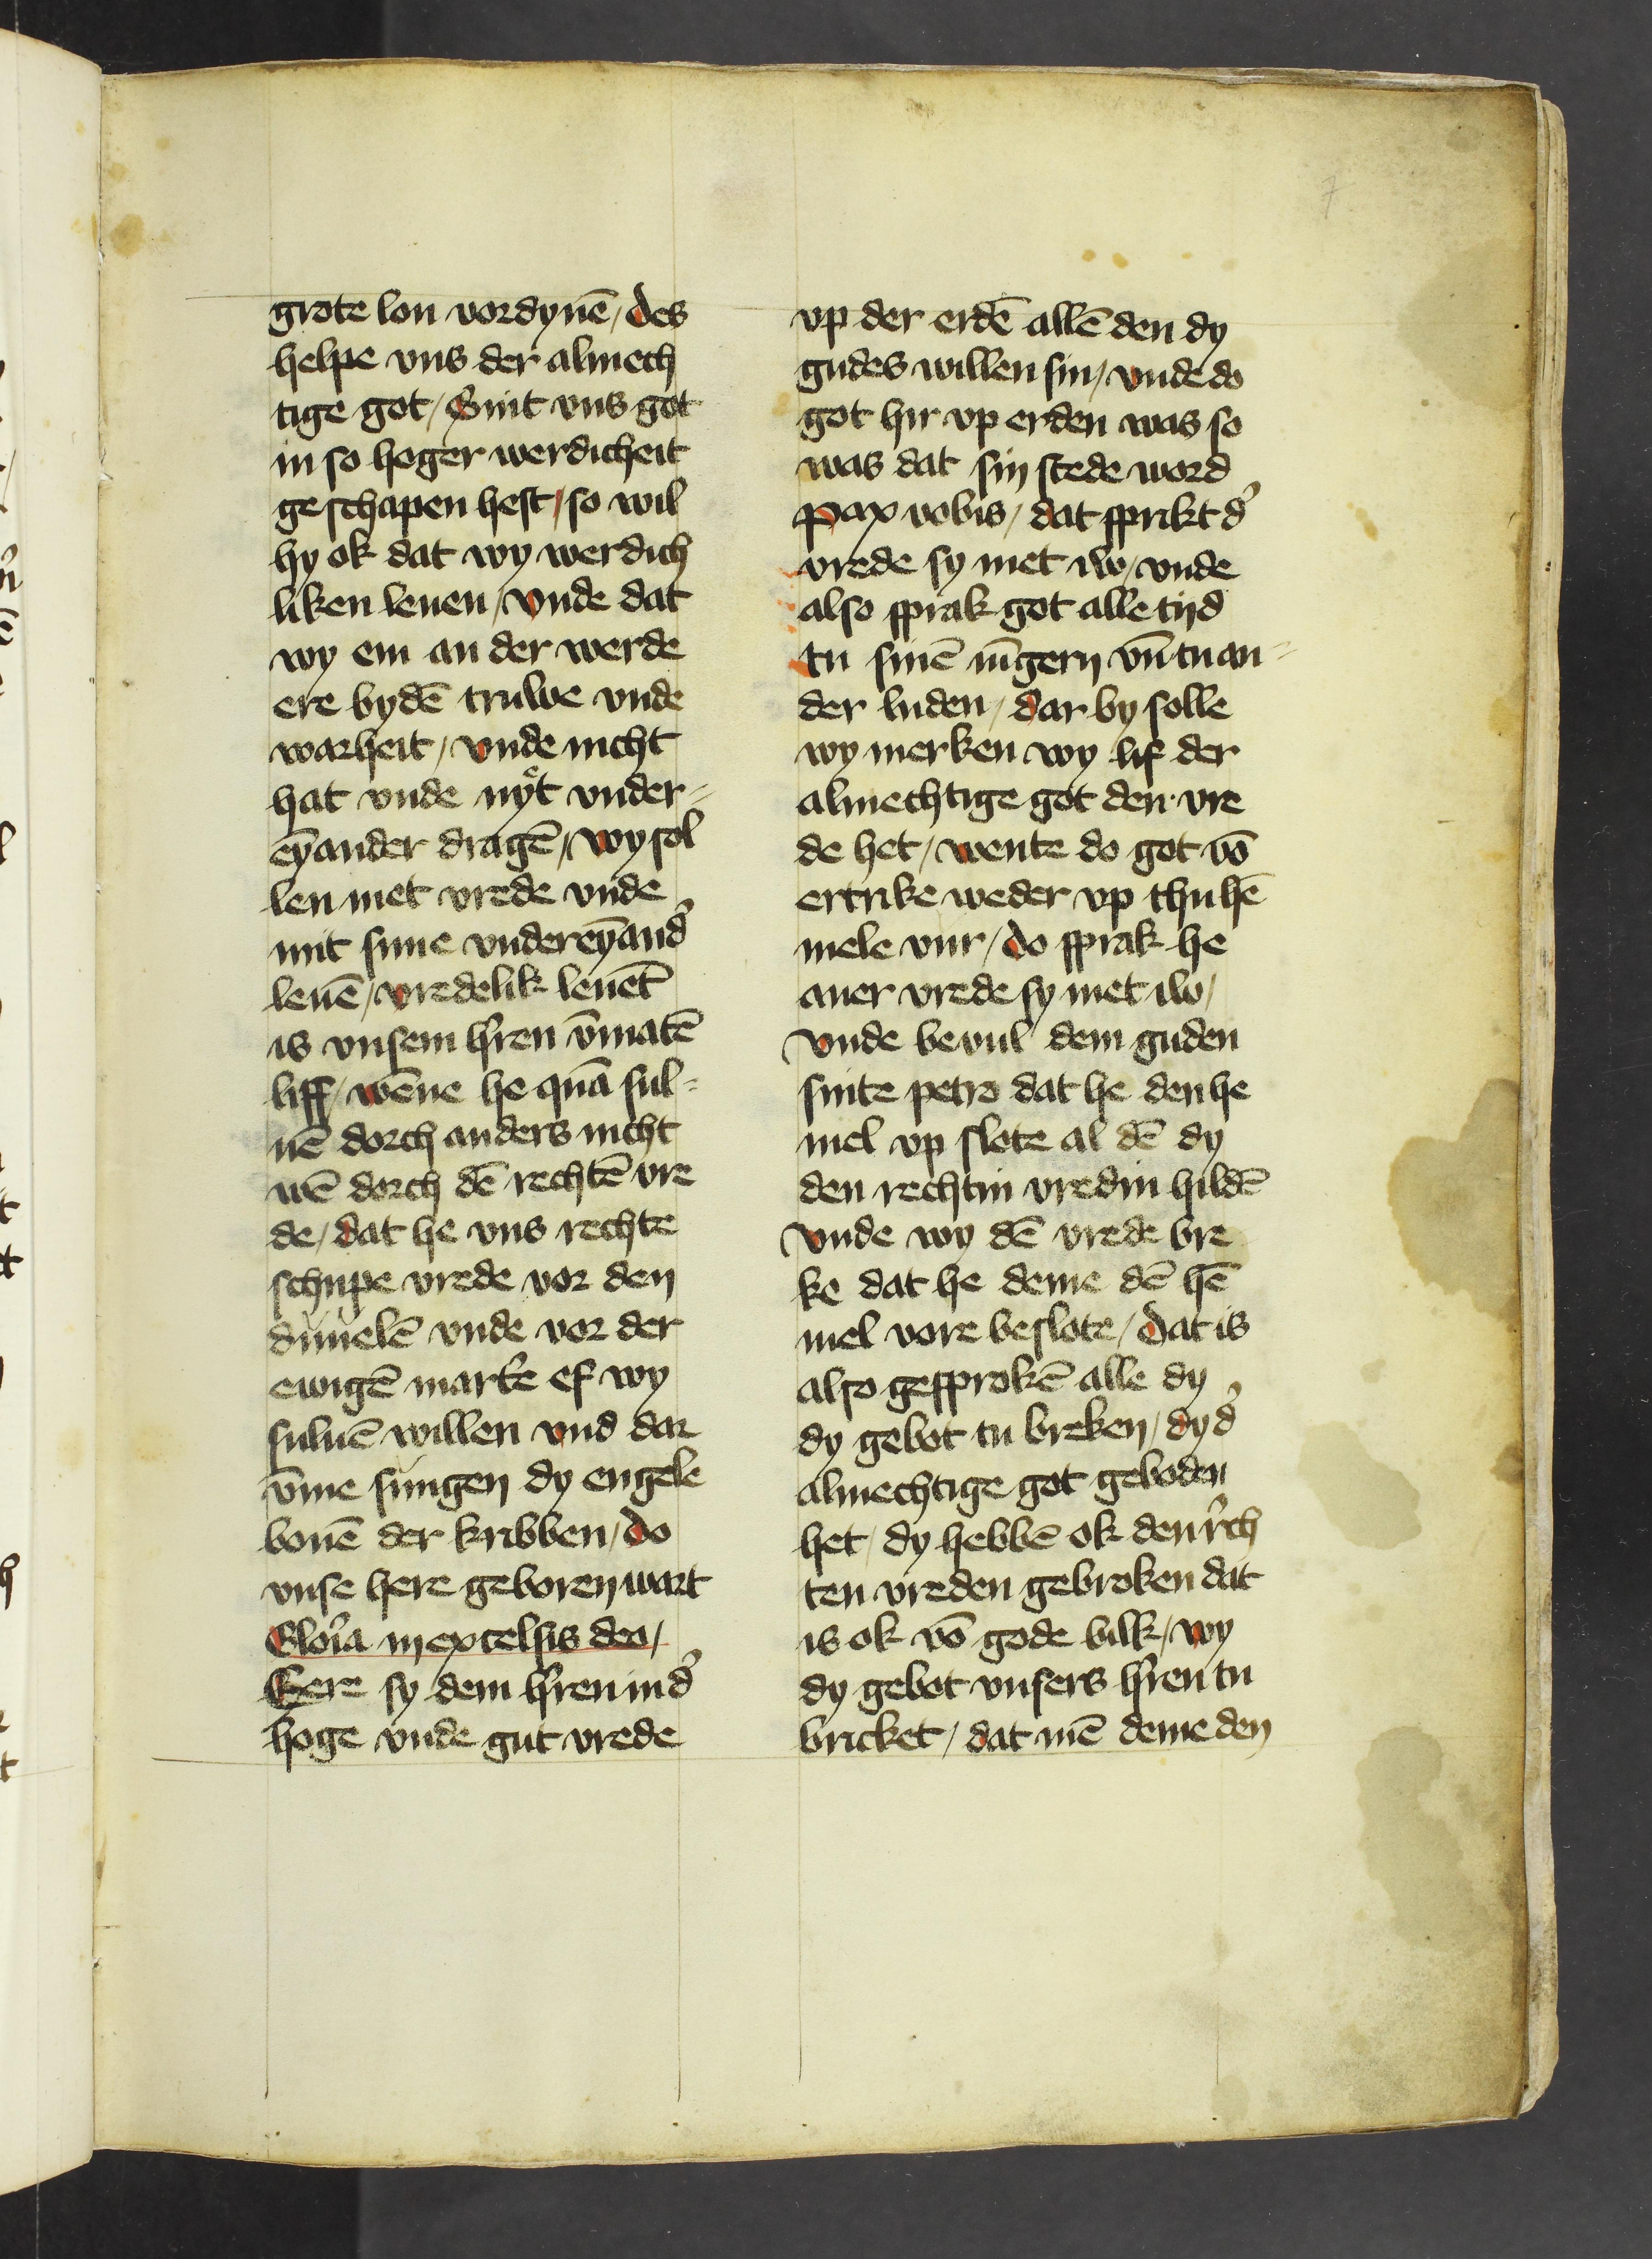 7
grote lon vordynē / Des
helpe vns der almech
tige got / Sint vns got
in so hoger werdicheit
geschapen hest / so wil
hy ok dat wy werdich
liken leuen / vnde dat
wy ein an der werde
ere bydē truwe vnde
warheit / vnde nicht
hat vnde nyͤt vnder-
eȳander dragē / wy sol
len met vrede vnde
mit sune vndereȳand᾽
leuē / vredelik leuet
is vnsem h᾽ren v̄matē
liff / wēne he quā sul-
uē dorch anders nicht
wē dorch dē rechtē vre
de / dat he vns rechte
schupe vrede vor den
duuelē vnde vor der
ewigē mart᾽e ef wy
suluē willen vnd dar
v̄me sungen dy engele
bouē der kribben / do
vnse here geboren wart
Glor᾽ia in excelsis deo /
Eere sy dem h᾽ren in d᾽
hoge vnde gut vrede
vp der erdē allē den dy
gudes willen sin / vnde do
got hir vp erden was so
was dat sin stede word
Pax vobis / dat sprikt d᾽
vrede sy met iw / vnde
also sprak got alle tijd
tu sinē iūgern vn̄ tu an-
der luden / dar by solle
wy merken wy lif der
almechtige got den vre
de het / wente do got vō
ertrike weder vp thu hē
mele vur / do sprak he
auer vrede sy met iw /
vnde beuul dem guden
sinte petro dat he den he
mel vp slote al dē dy
den rechtin vredin hildē
vnde wy dē vrede bre
ke dat he deme dē hē
mel vore beslote / Dat is
also gesprokē alle dy
dy gebot tu breken / dy d᾽
almechtige got geboden
het / dy hebbē ok den r᾽ch
ten vreden gebroken dat
is ok vō gode bilk / wy
dy gebot vnsers h᾽ren tu
bricket / dat mē deme den